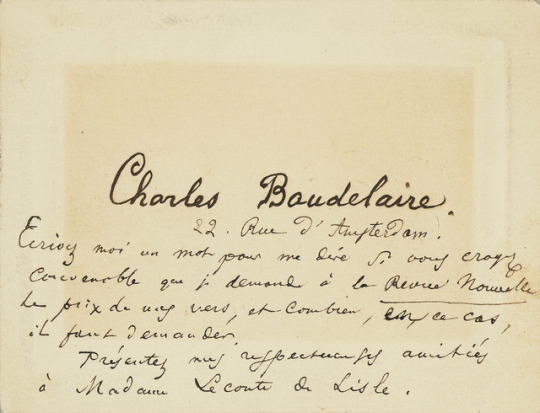 Charles Baudelaire.
22. Rue d'Amsterdam.
Ecrivez moi un mot pour me dire si vous croyez
convenable que je demande à la Revue Nouvelle
le prix de mes vers, et combien, en ce cas,
il faut demander.
Présentez mes respectueuses amitiés
à Madame Leconte de Lisle.